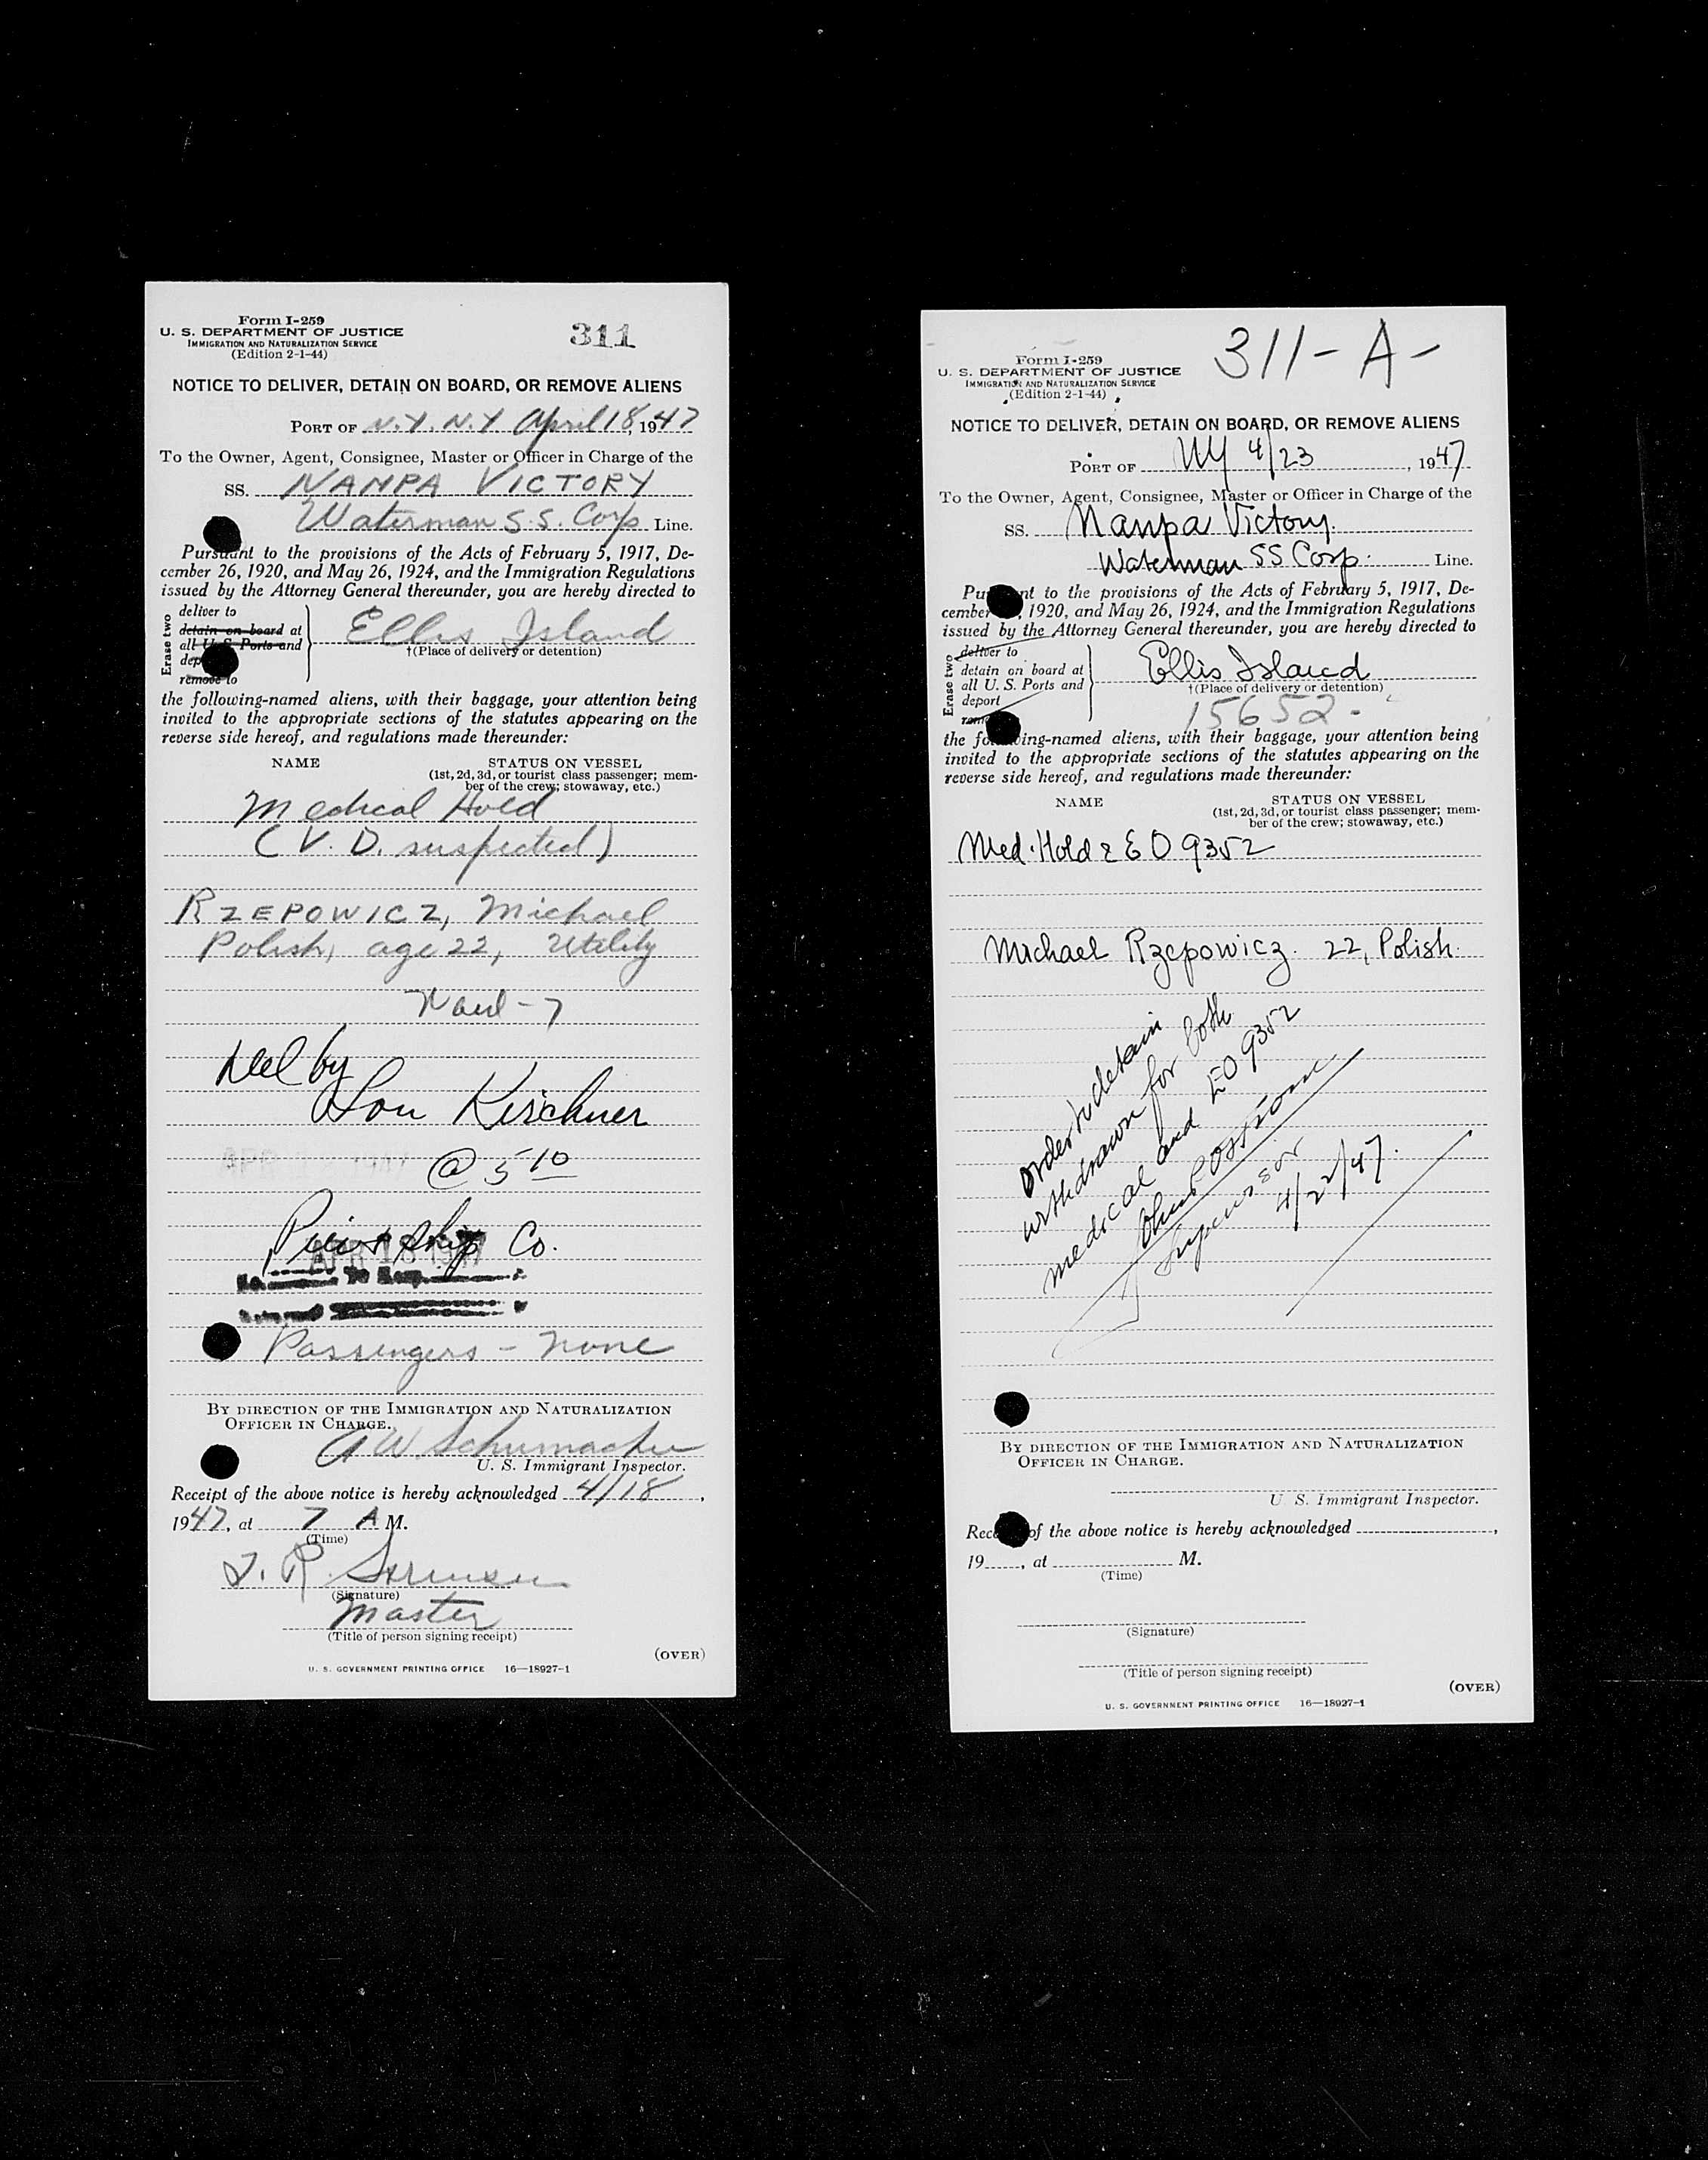 Form I-259
U. S. DEPARTMENT OF JUSTICE
IMMIGRATION AND NATURALIZATION SERVICE
(Edition 2-1-44)
311
NOTICE TO DELIVER, DETAIN ON BOARD, OR REMOVE ALIENS
PORT OF N.Y. N.Y April 18, 1947
To the Owner, Agent, Consignee, Master or Officer in Charge of the
SS. NAMPA VICTORY
Waterman S.S. Corp Line.
Pursuant to the provisions of the Acts of February 5, 1917, De-
cember 26, 1920, and May 26, 1924, and the Immigration Regulations
issued by the Attorney General thereunder, you are hereby directed to
Erase two
deliver to
detain on board at
all U. S. Ports and
dep
remove to
Ellis Island
†(Place of delivery or detention)
the following-named aliens, with their baggage, your attention being
invited to the appropriate sections of the statutes appearing on the
reverse side hereof, and regulations made thereunder:
NAME STATUS ON VESSEL
(1st, 2d, 3d, or tourist class passenger; mem-
ber of the crew; stowaway, etc.)
Medical Hold
(V. D. suspected)
RZEPOWICZ, Michael
Polish, age 22, Utility
Ward - 7
Del by
Lou Kirchner
@ 5 10
Ship Co.
APR 18 1947
Passengers - none
BY DIRECTION OF THE IMMIGRATION AND NATURALIZATION
OFFICER IN CHARGE.
A W. Schumacher
U. S. Immigrant Inspector.
Receipt of the above notice is hereby acknowledged 4/18,
1947, at 7 A M.
(Time)
R. Sorensen
(Signature)
Master
(Title of person signing receipt)
(OVER)
U. S. GOVERNMENT PRINTING OFFICE 16—18927-1
311-A-
Form I-259
U. S. DEPARTMENT OF JUSTICE
IMMIGRATION AND NATURALIZATION SERVICE
(Edition 2-1-44)
NOTICE TO DELIVER, DETAIN ON BOARD, OR REMOVE ALIENS
PORT OF NY 4/23, 1947
To the Owner, Agent, Consignee, Master or Officer in Charge of the
SS. Nampa Victory.
Waterman SS Corp. Line.
Pu nt to the provisions of the Acts of February 5, 1917, De-
cember , 1920, and May 26, 1924, and the Immigration Regulations
issued by the Attorney General thereunder, you are hereby directed to
Erase two
deliver to
detain on board at
all U. S. Ports and
deport
rem
Ellis Island
†(Place of delivery or detention)
15652-
the fo wing-named aliens, with their baggage, your attention being
invited to the appropriate sections of the statutes appearing on the
reverse side hereof, and regulations made thereunder:
NAME STATUS ON VESSEL
(1st, 2d, 3d, or tourist class passenger; mem-
ber of the crew; stowaway, etc.)
Med. Hold & EO 9352
Michael Rzepowicz. 22, Polish.
Order to detain
withdrawn for both
medical and EO 9352
Supervisor
4/22/47.
BY DIRECTION OF THE IMMIGRATION AND NATURALIZATION
OFFICER IN CHARGE.
U. S. Immigrant Inspector.
Rece of the above notice is hereby acknowledged ,
19 , at M.
(Time)
(Signature)
(Title of person signing receipt)
(OVER)
U. S. GOVERNMENT PRINTING OFFICE 16—18927-1